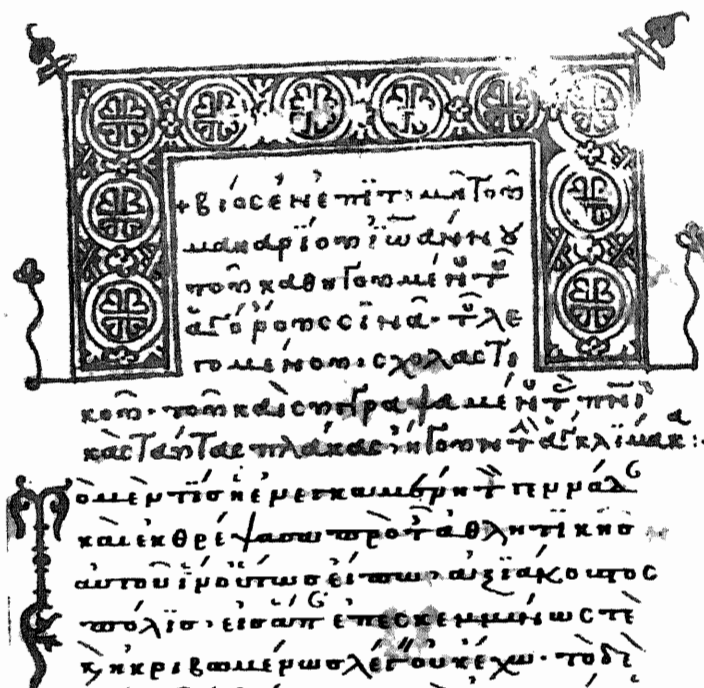 + βίος ἐν ἐπιτομῆ τοῦ
μακαρίου ἰωάννου
τοῦ καθηγουμένου τοῦ
ἁγ ὄρους σινᾶ· τοῦ λε
γομένου σχολαστι
κοῦ· τοῦ καὶ συγγραψαμένου τὰς πνι
κὰς ταύτας πλάκας, ἤγουν τ ἁγ κλίμακα :·
Τὸ μὲν τίς ἡ ἐνεγκαμένη τὸν γεννάδα
καὶ ἐκθρέψασα πρὸ τ ἀθλητικῆς
αὐτοῦ ἵν' οὕτως εἴπω, ἀξιάκουστος
πόλις, ἐπεσκεμμένως τὲ
κ ἠκριβωμένως λέγ οὐκ ἔχω· τὸ δὲ